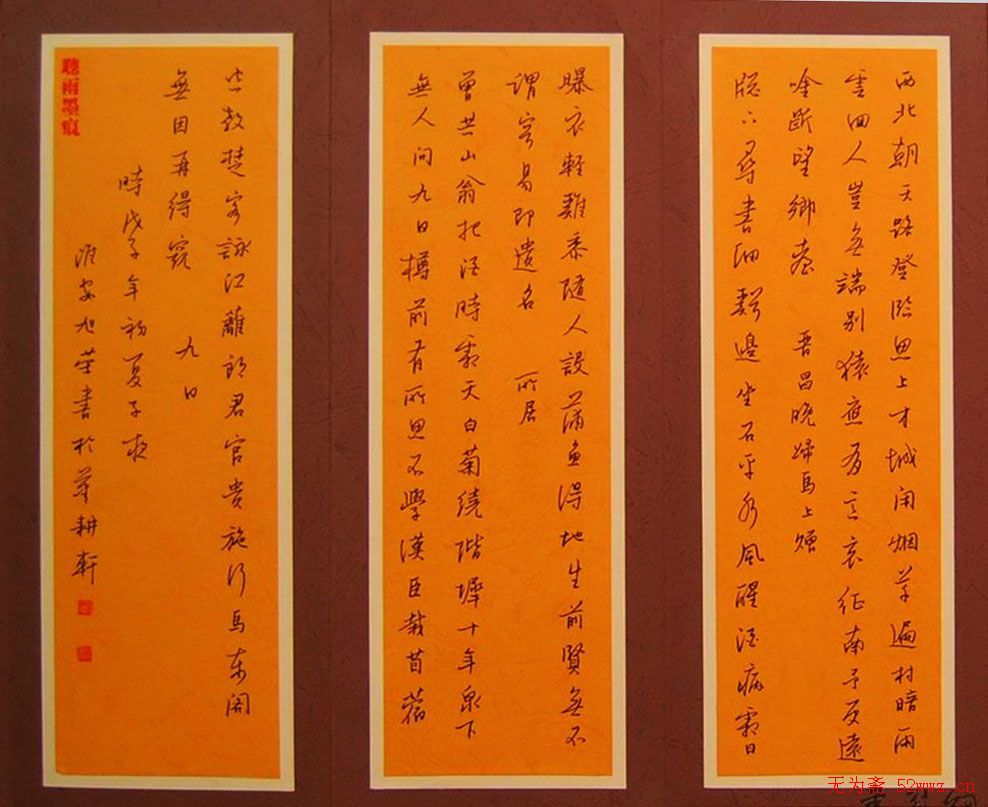 西北朝天路登臨思上才城閑烟草遍村暗雨
雲回人豈無端別猿應有意哀征南予更遠
吟斷望鄉臺 晉昌晚歸馬上贈
窗下尋書細谿邊坐石平水風醒酒病霜日
曝衣輕雞黍隨人設蒲魚得地生前賢無不
謂容易即遺名 所居
曾共山翁把酒時霜天白菊繞階墀十年泉下
無人問九日樽前有所思不學漢臣栽苜蓿
空教楚客詠江蘺郎君官貴施行馬東閣
無因再得窺 九日
時戊子年初夏子夜
淮安旭榮書於草耕軒
聽雨墨痕
无为斋 52wwz.cn